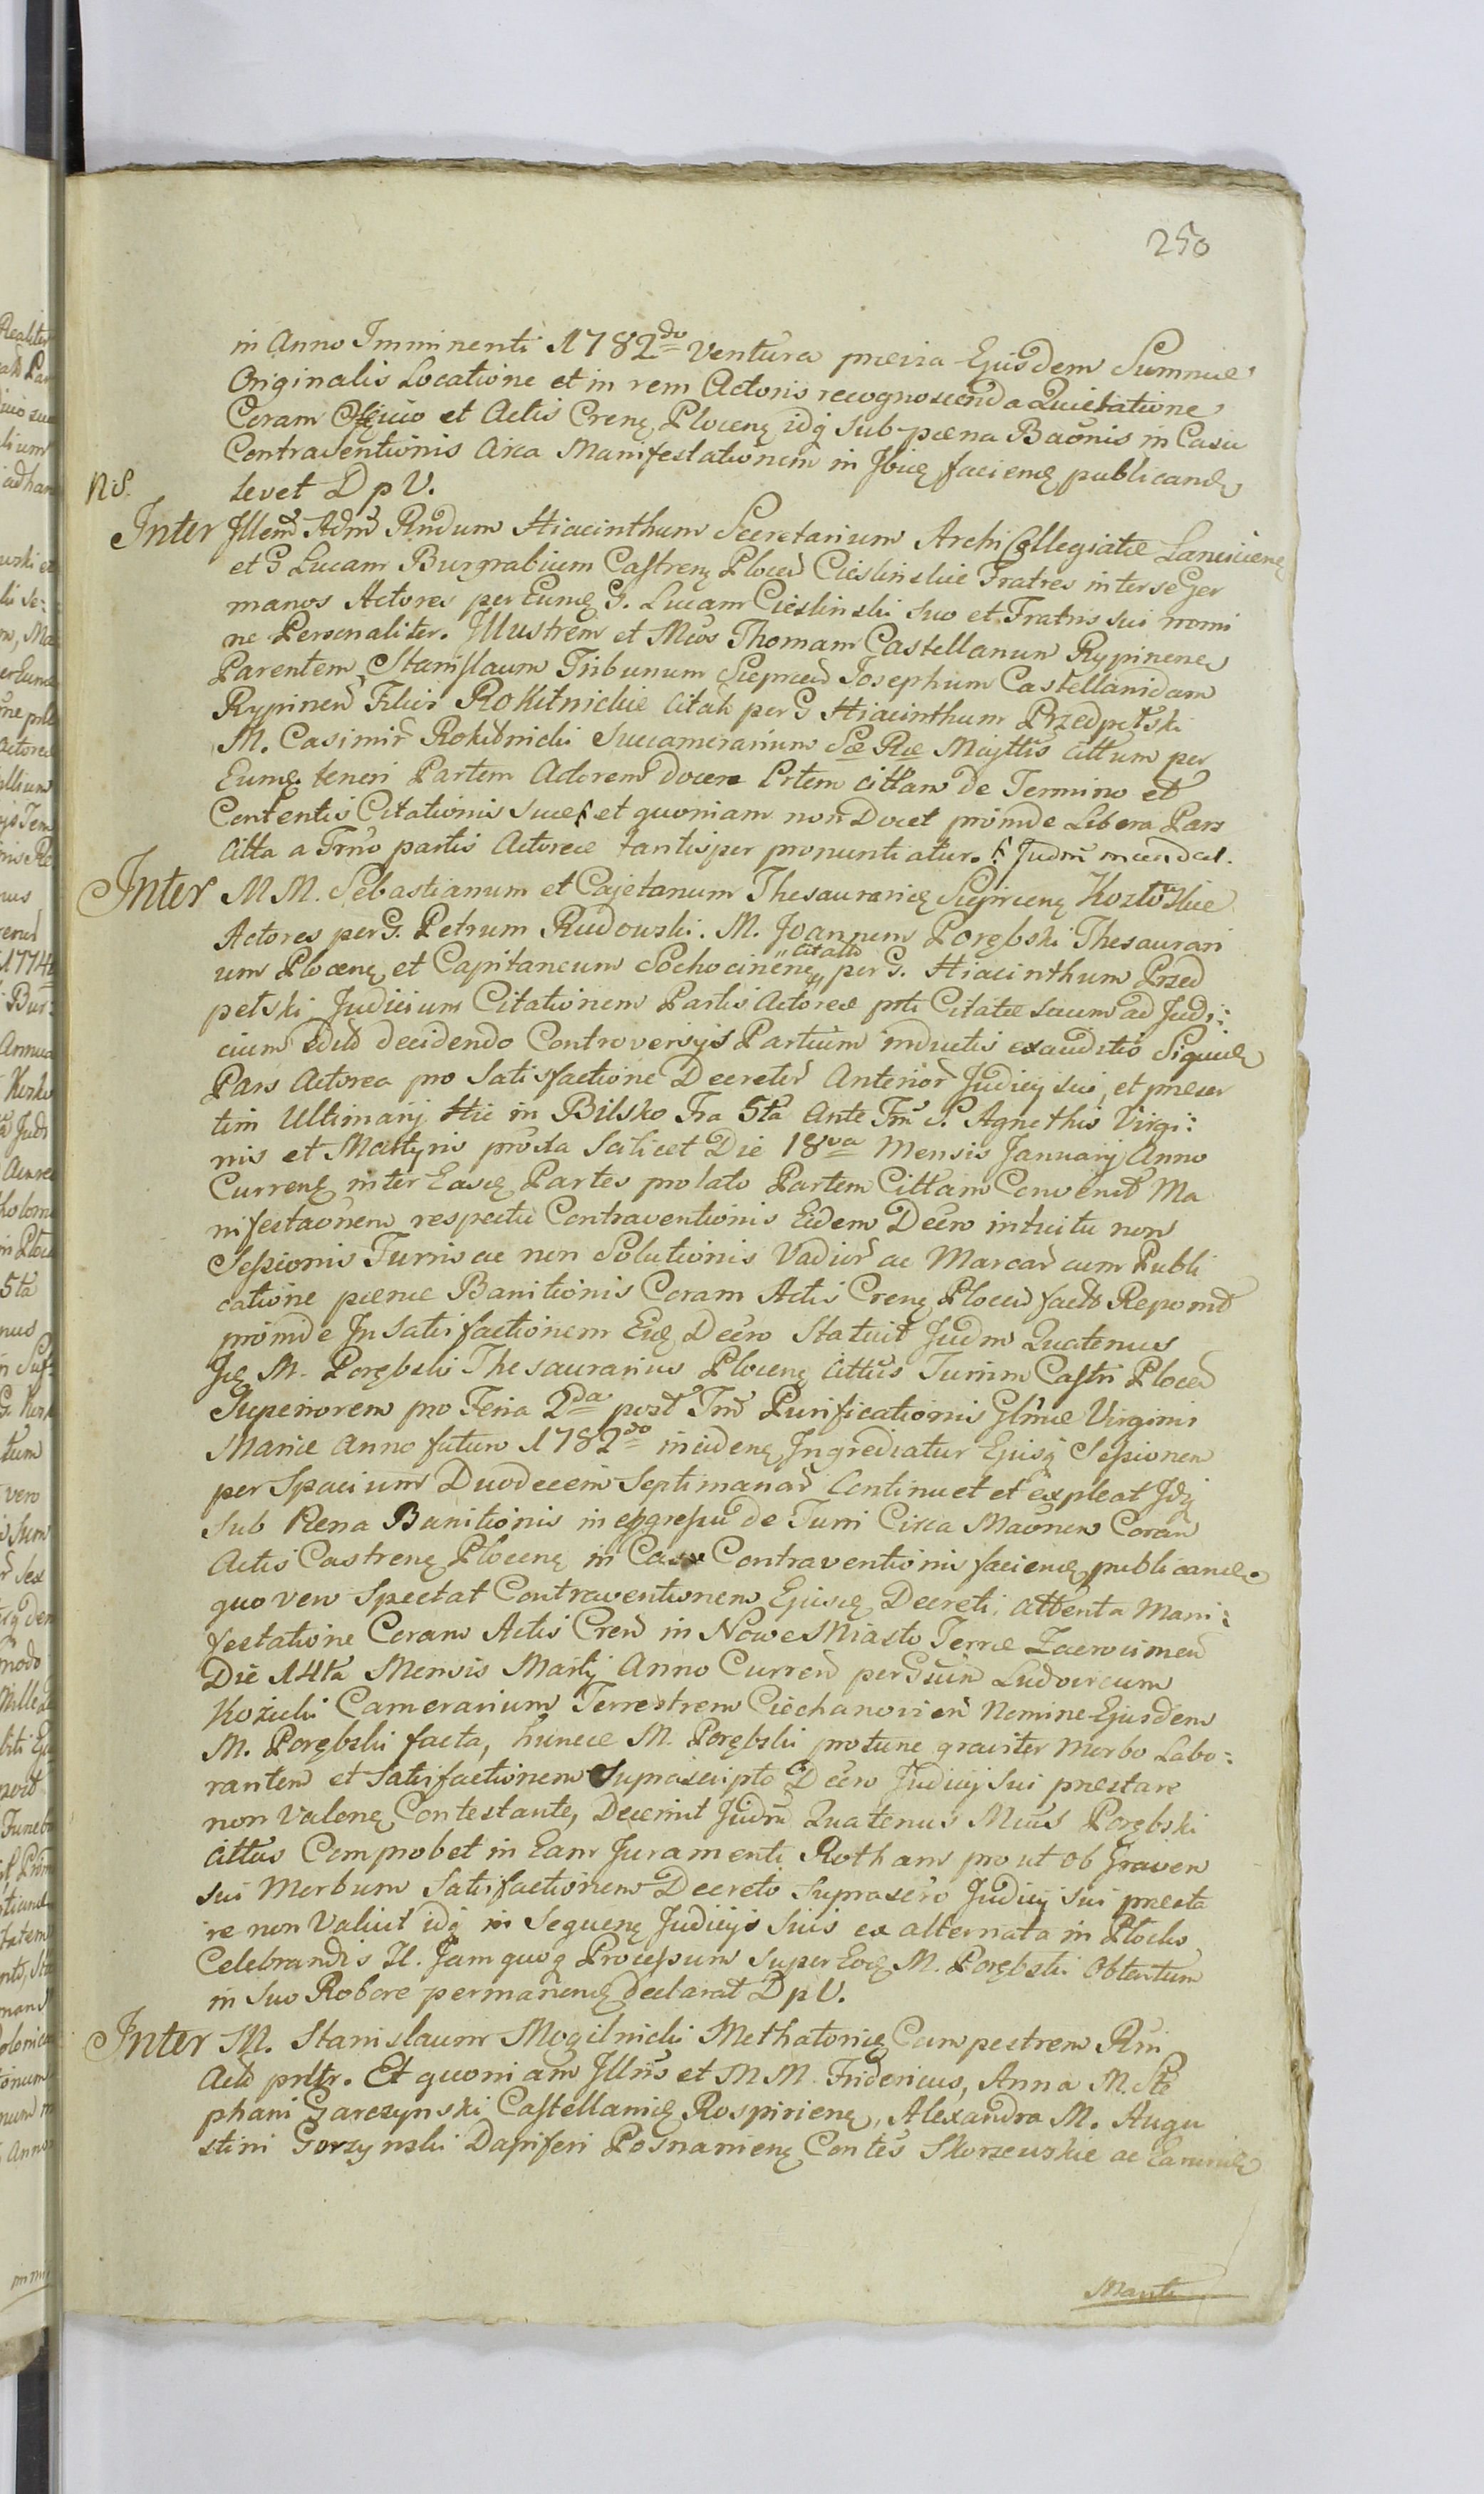 250
in Anno Imminenti 1782do ventura prævia Ejusdem Summæ
Originalis Locatione et in rem Actoris recognoscenda Quietatione
Coram Officio et Actis Crenꝫ Plocenꝫ idq sub pœna Baõnis in Casu
Contraventionis circa Manifestationem in Jbidꝫ faciendꝫ publicandꝫ
levet D p V.
NS.
Inter Jllem Adm Rndum Hiacinthum Secretarium Archi Collegiatæ Lanciciensꝫ
et G Lucam Burgrabium Castrenꝫ Plocen Cieslinskie Fratres inter se Ger
manos Actores per Eumdꝫ G. Lucam Cieslinski suo et Fratris sui nomi
ne Personaliter. Jllustrem et Mcos Thomam Castellanum Rypinenꝫ
Parentem, Stanislaum Tribunum Sieprcen Josephum Castellanidam
Rypinen Filios Rokitnickie citatt per G Hiacinthum Przedpełski
M. Casimir Rokitnicki Succamerarium Sæ Ræ Majttis cittum per
Eumdꝫ teneri Partem Actorem docere Prtem cittam de Termino et
Contentis Citationis suæ et quoniam non Docet proinde Libera Pars
citta a Trno partis Actoreæ tantisper pronuntiatur.
Inter M M. Sebastianum et Cajetanum Thesaurariꝫ Sieprcenꝫ Kozłoskie
Actores per G. Petrum Rudowski. M. Joannem Porębski Thesaurari
um Plocenꝫ et Capitaneum Sochocinenꝫ citatt per G. Hiacinthum Przed
pełski Judicium Citationem Partis Actoreæ prti Citatæ secum ad Judi:
cium edito decidendo Controversijs Partium inductis exauditis Siquidꝫ
Pars Actorea pro satisfactione Decretor Anterior Judicij sui, et præser
tim Ultimarij Hic in Bilsko Fra 5ta Ante Fm S. Agnethis Virgi:
nis et Martyris proxa scilicet Die 18va Mensis Januarij Anno
Currenꝫ inter Easdꝫ Partes prolato Partem Cittam Convenit Ma
nifestaõnem respectu Contraventionis Eidem Decro intuitu non
Sessionis Turris ac non Solutionis Vadior ac Marcar cum Publi
catione pœnæ Banitionis Coram Actis Crenꝫ Plocen facto Reponit
proinde In Satisfactionem Eidꝫ Decro Statuit Judm Quatenus
Jdꝫ M. Porębski Thesaurarius Plocenꝫ cittus Turrim Castri Plocen
Superiorem pro Feria 2da post Fm Purificationis Glmæ Virginis
Mariæ Anno futuro 1782do incidenꝫ Ingrediatur Ejusq Sessionem
per Spacium Duodecem Septimanar Continuet et expleat Jdq
sub Pena Banitionis in egressu de Turri Circa Maõnem Coram
Actis Castrenꝫ Plocenꝫ in Casu Contraventionis faciendꝫ publicandꝫ.
quo vero spectat Contraventionem Ejusdꝫ Decreti, attenta Mani:
festatione Coram Actis Cren in Nowe Miasto Terræ Zacrocimen
Die 14ta Mensis Martij Anno Curren per Gsum Ludovicum
Kozicki Camerarium Terrestrem Ciechanovien Nomine Ejusdem
M. Porębski facta, huncce M. Porębski protunc graviter Morbo Labo:
rantem et Satisfactionem Suprascripto Decro Judicij Sui præstare
non Valenꝫ Contestante, Decernit Judm Quatenus Mcus Porębski
cittus Comprobet in Eam Juramenti Rotham prout ob Gravem
sui Morbum Satisfactionem Decreto Suprascro Judicij sui præsta
re non Valuit idq in Sequenꝫ Judicijs suis ex alternata in Płocko
Celebrandis Jl. Jam quoq Processum super Eodꝫ M. Porębski Obtentum
in suo Robore permanendꝫ declarat D p V.
Inter M. Stanislaum Mogilnicki Methatoridꝫ Campestrem Rni
Act prsltr. Et quoniam Jllris et M M. Fridericus, Anna M. Ste
phani Garczynski Castellanidꝫ Rospirienꝫ, Alexandra M. Augu
stini Gorzynski Dapiferi Posnanienꝫ Contes Skorzewskie ac Earumdꝫ
Mariti